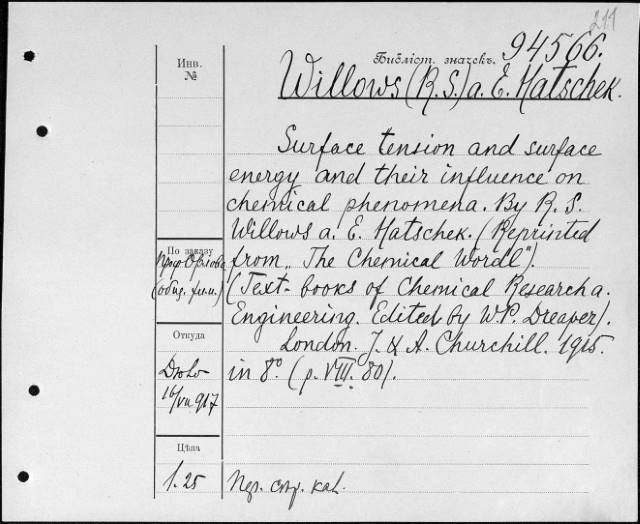 211
Инв.
№
Библіот. значекъ. 94566.
Willows (R. S.) a. E. Hatschek.
Surface tension and surface
energy and their influence on
chemical phenomena. By R. S.
Willows a. E. Hatschek. (Reprinted
from „The Chemical Wordl").
(Text-books of Chemical Research a.
Engineering. Edited by W. P. Dreaper).
London. J. & A. Churchill. 1915.
in 8º. (p. VIII. 80).
По заказу
Проф Орлова
(общ. хим.)
Откуда
16/VII 917
Цѣна
1.25